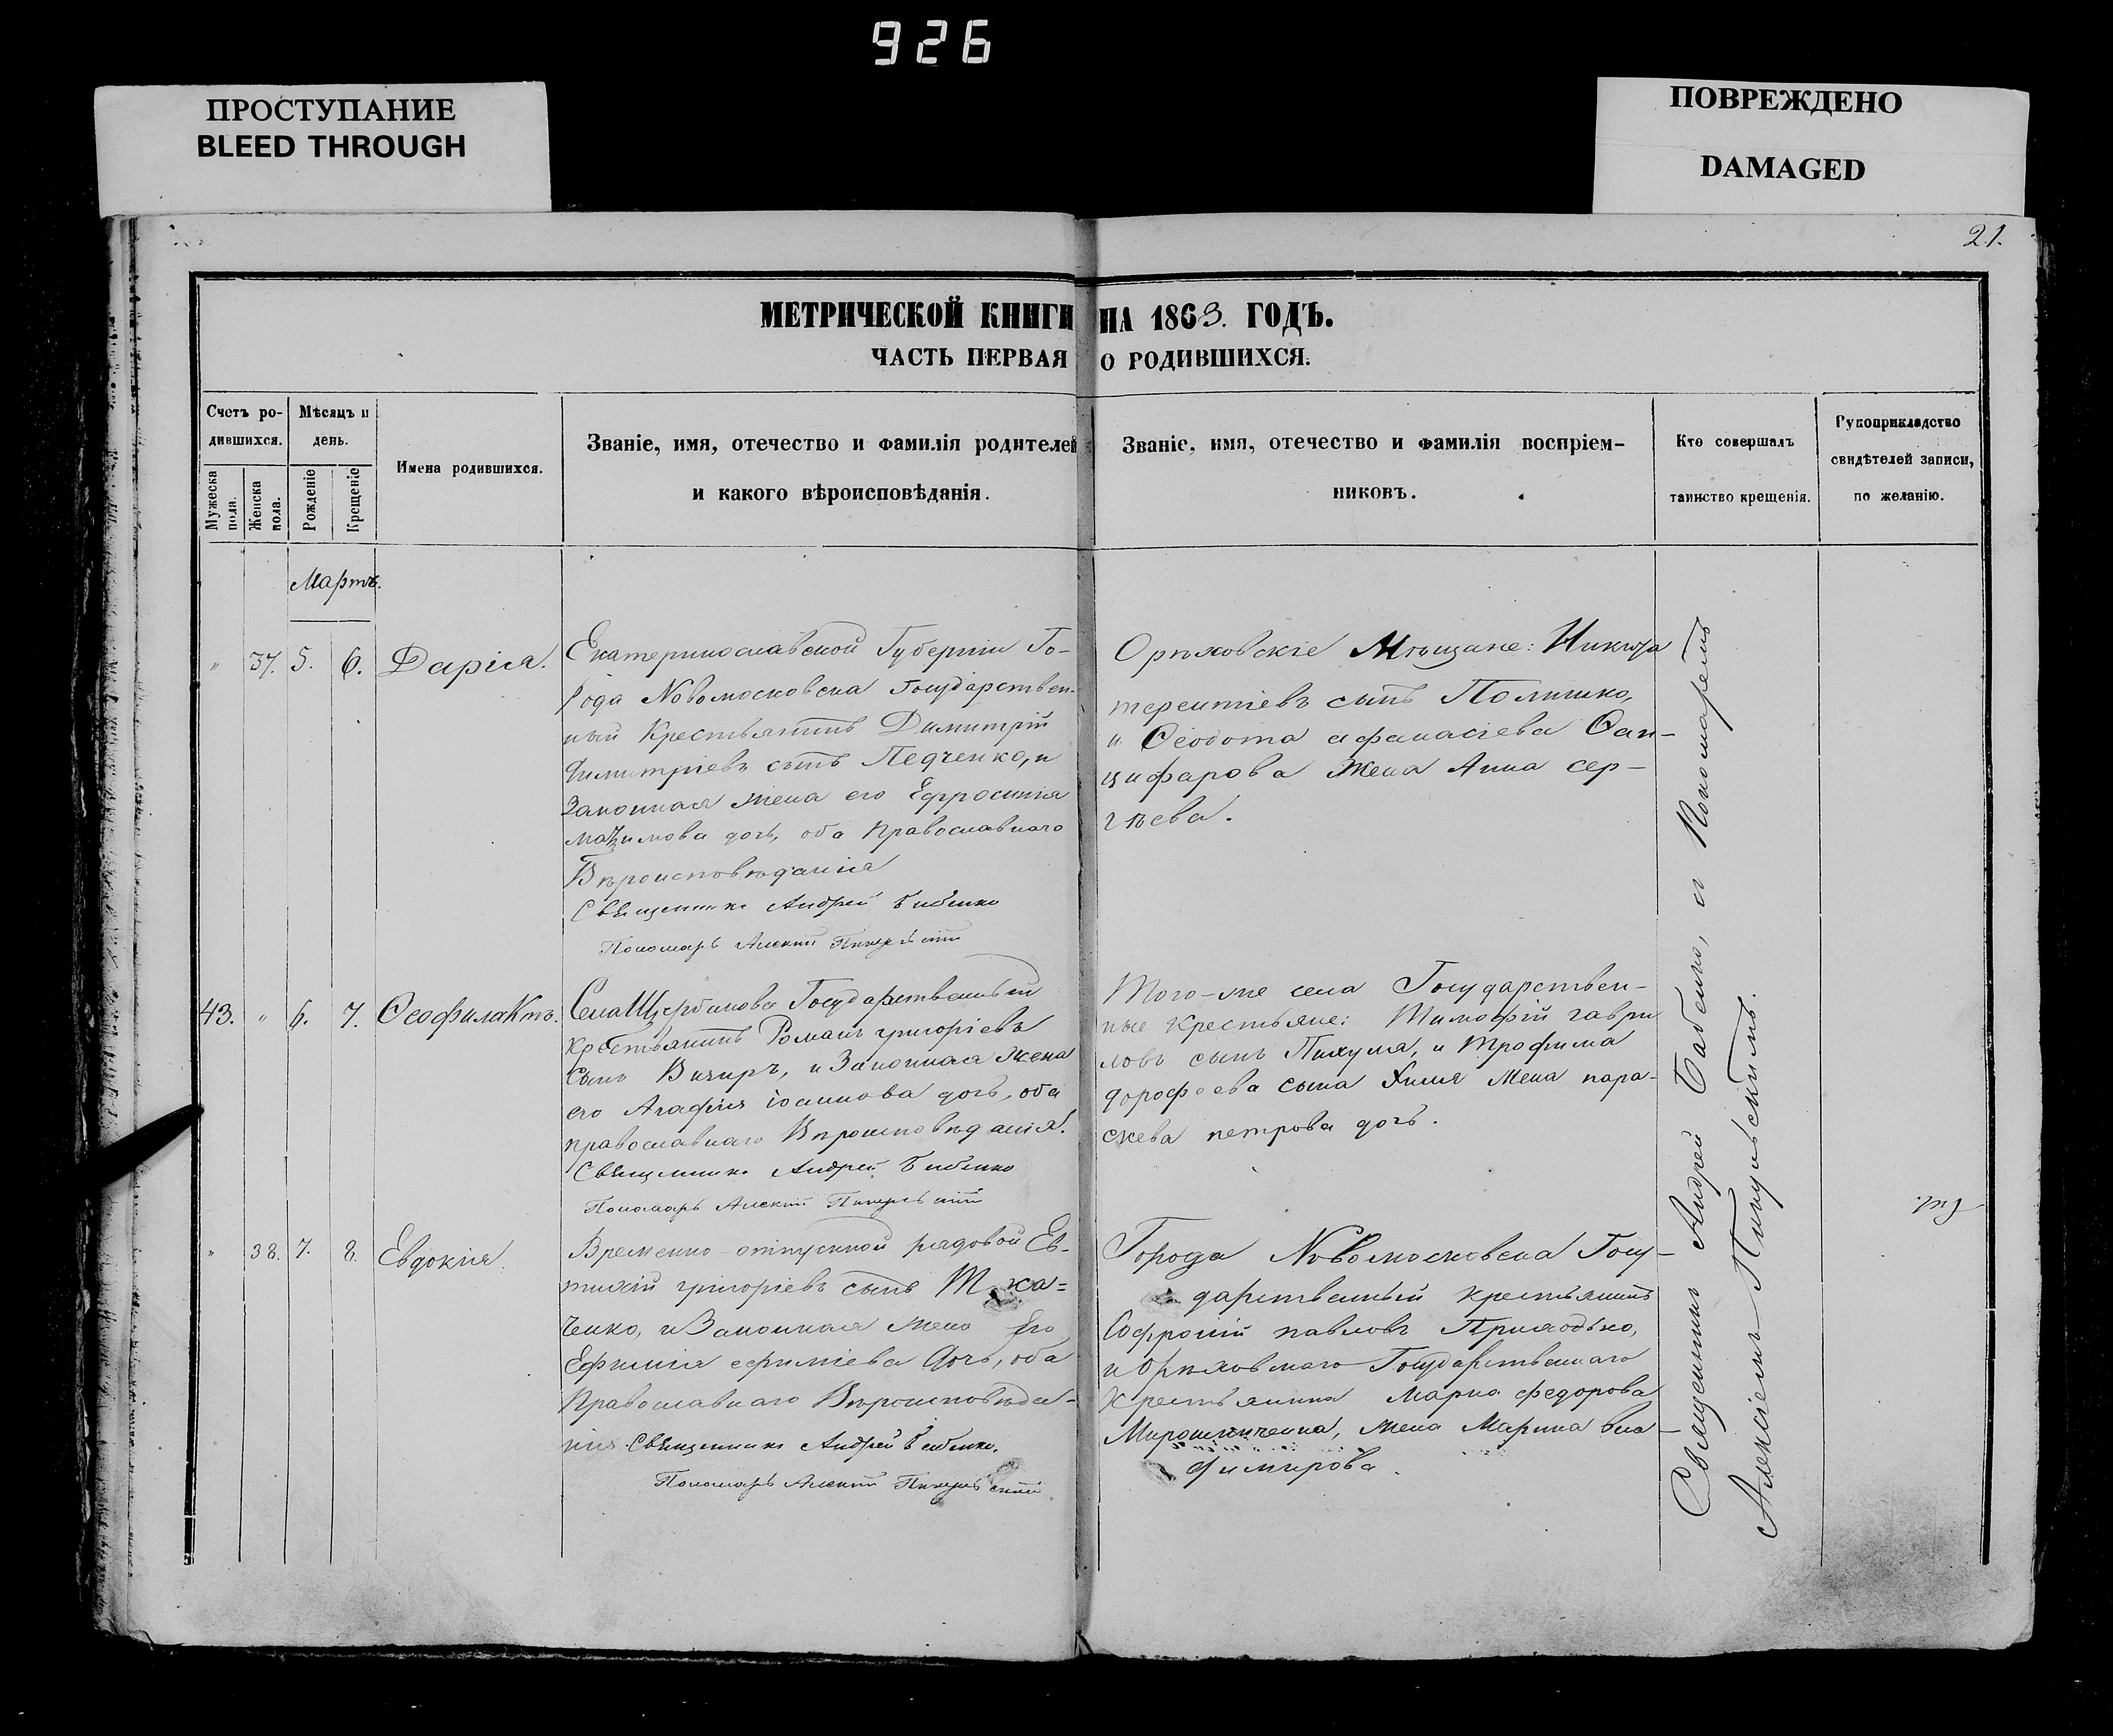 926
ПРОСТУПАНИЕ
BLEED THROUGH
ПОВРЕЖДЕНО
DAMAGED
21.
МЕТРИЧЕСКОЙ КНИГИ НА 1863. ГОДЪ.
ЧАСТЬ ПЕРВАЯ О РОДИВШИХСЯ.
Счетъ ро-
дившихся.
Мужеска пола.
Женска пола.
Мѣсяцъ и
день.
Рожденіе
Крещеніе
Имена родившихся.
Званіе, имя, отечество и фамилія родителей
и какого вѣроисповѣданія.
Званіе, имя, отечество и фамилія воспріем-
никовъ.
Кто совершалъ
таинство крещенія.
Рукоприкладство
свидѣтелей записи,
по желанію.
Мартъ.
" 37. 5. 6. Дарія.
Екатеринославской Губерніи Го-
рода Новомосковска Государствен-
ный Крестьянинъ Димитрій
Димитріевъ сынъ Педченко, и
Законная жена его Ефросинія
Мазимова дочь, оба Православнаго
Вѣроисповѣданія
Священникъ Андрей Бабенко
Пономарь Алексій
Орѣховскіе Мѣщане: Никита
терентіевъ сынъ Полишко,
и Ѳеодота афанасіева Ѳан-
цифарова Жена Анна сер-
гѣева.
43. " 6. 7. Ѳеофилактъ.
Села Щербаковки Государственный
крестьянинъ Романъ григоріевъ
Сынъ Вихиръ, и Законная жена
его Агафія іоаннова дочь, оба
православнаго Вѣроисповѣданія.
Священникъ Андрей Бабенко
Пономарь Алексій
Того-же села Государствен-
ные крестьяне: Тимофій гаври
ловъ сынъ Пихуля, и Трофима
дорофеева сына Хиля жена пара-
скева петрова дочь.
" 38. 7. 8. Евдокія.
Временно-отпускной рядовой Ев-
тихій григоріевъ сынъ Тка=
ченко, и Законная жена Его
Ефимія ефиміева дочь, оба
Православнаго Вѣроисповѣда-
нія. Священникъ Андрей Бабенко.
Пономарь Алексій
Города Новомосковска Госу-
дарственный крестьянинъ
Софроній павловъ Приходько,
и Орѣховскаго Государственнаго
Крестьянина Марка федорова
Мирошниченка, жена Марина вла-
димирова.
Священникъ Андрей Бабенко, и Пономаремъ
Алексіемъ